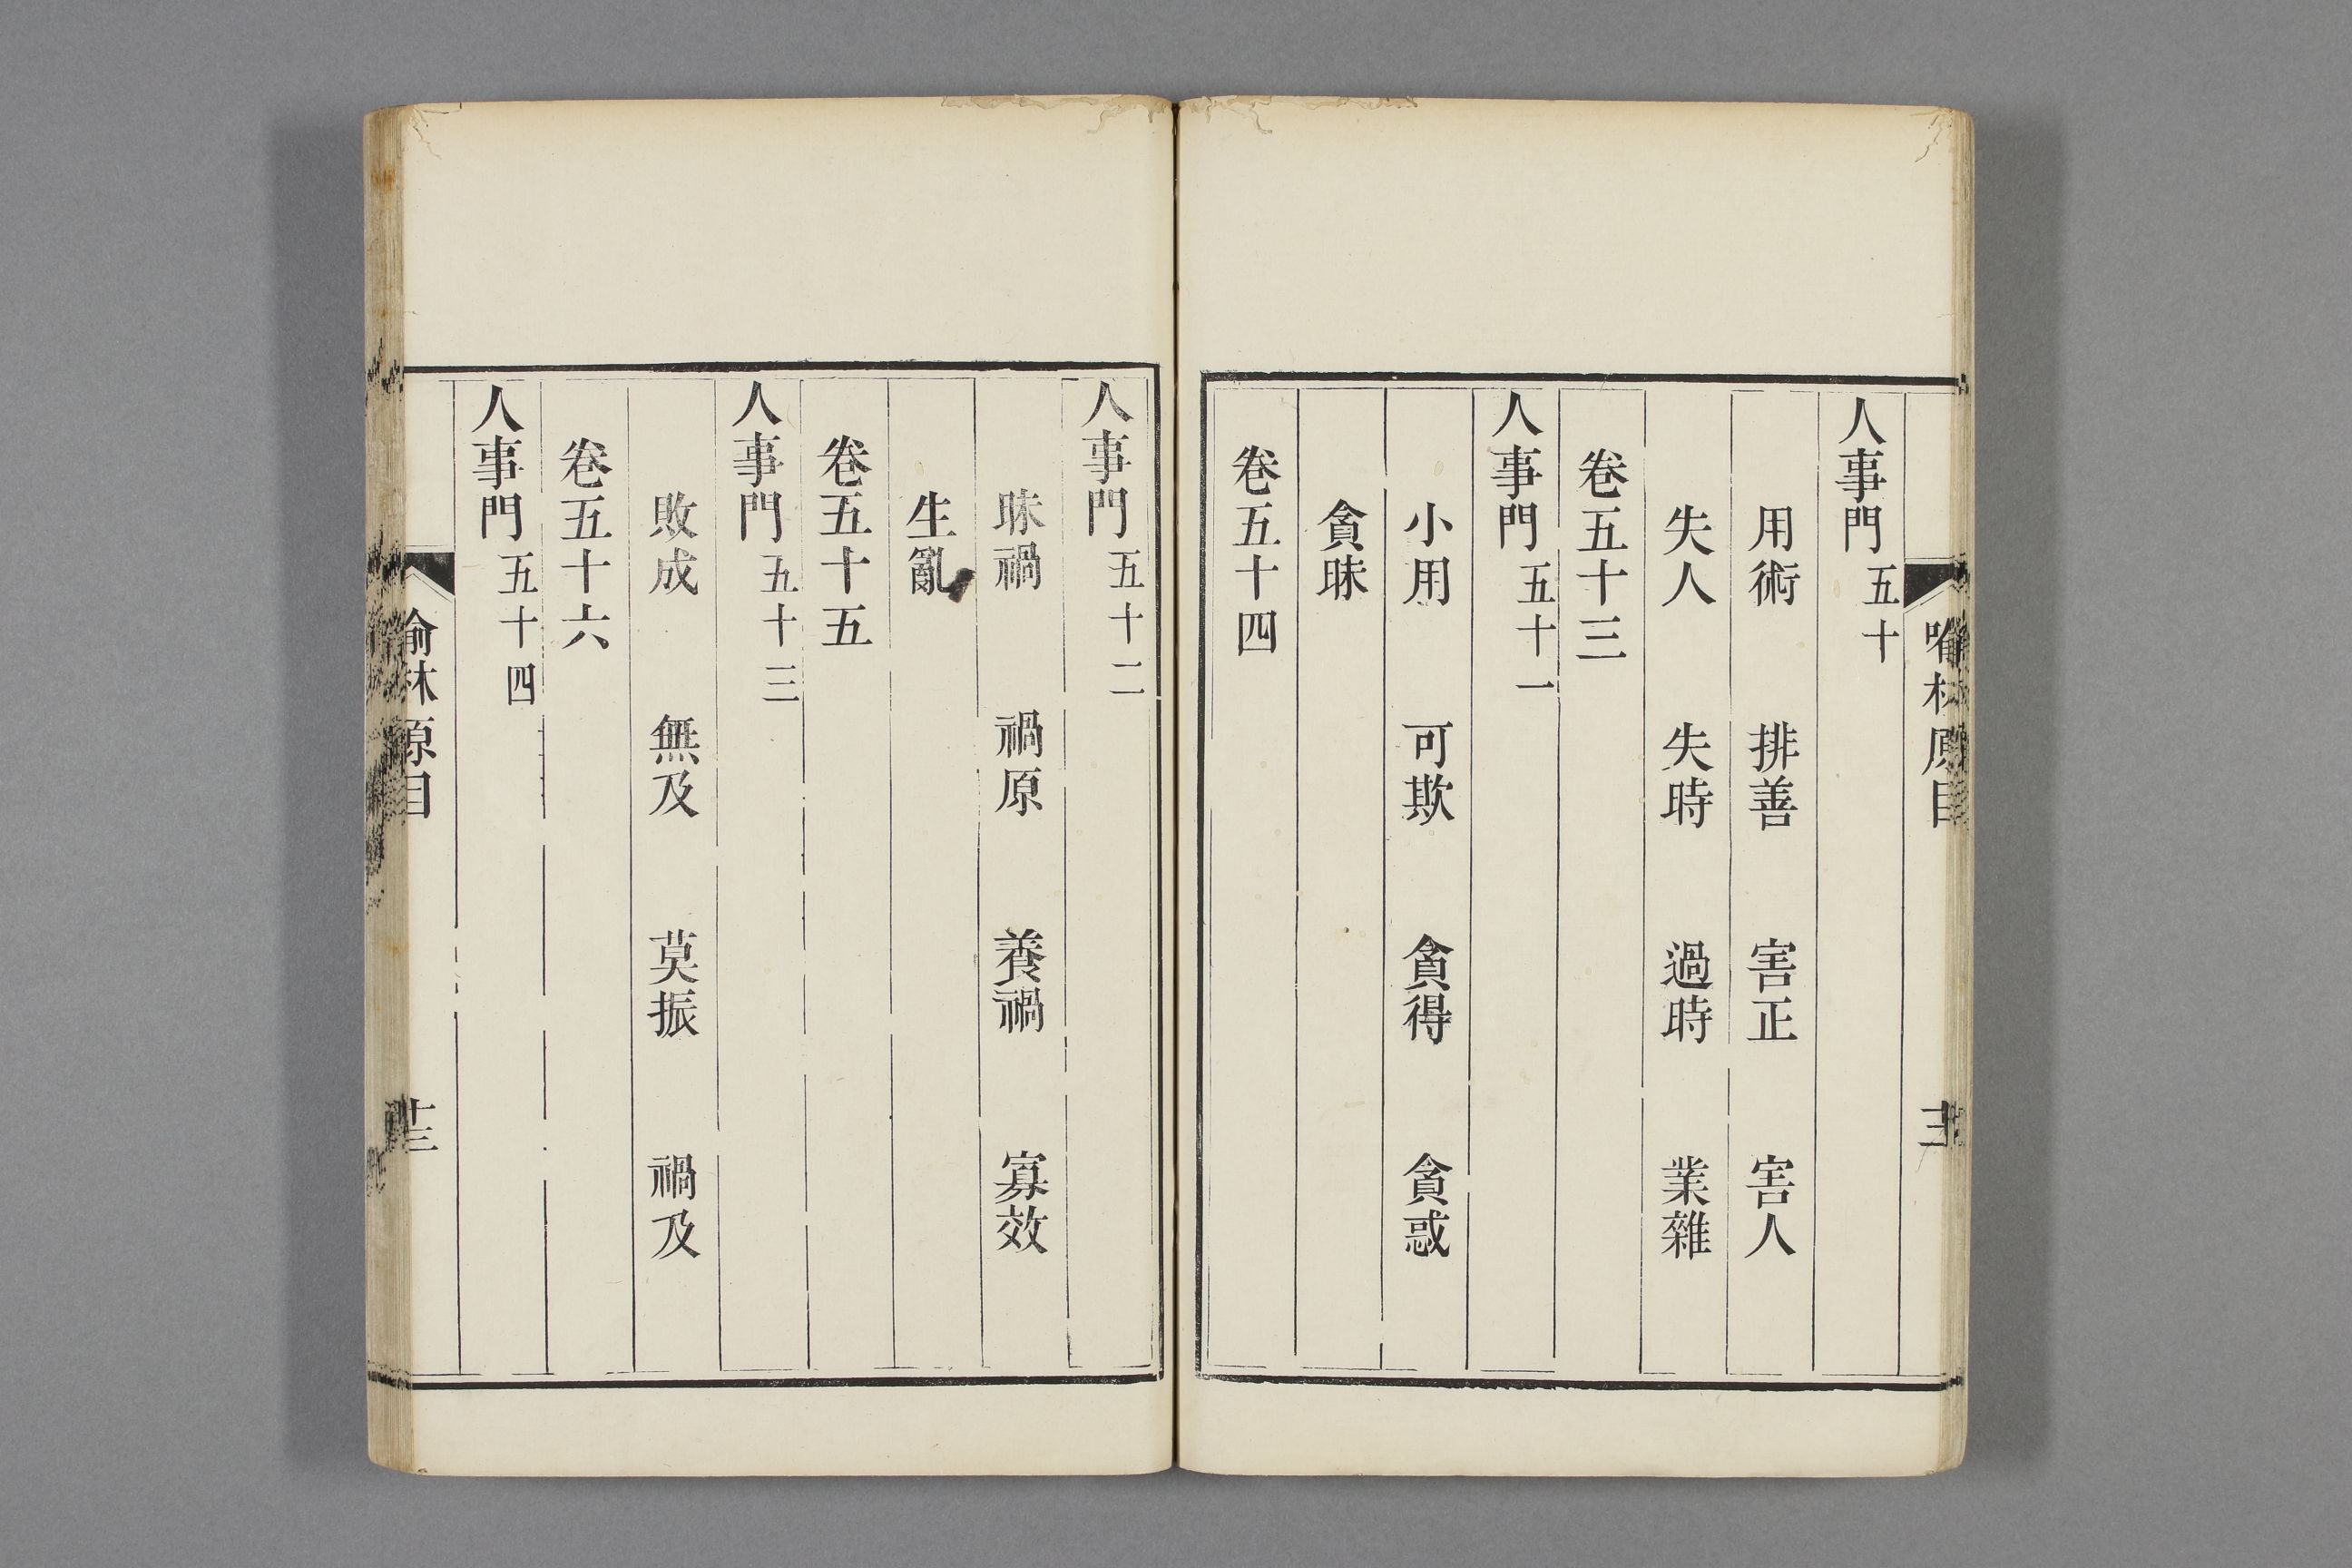 人事門五十
用術 排善 害正 害人
失人 失時 過時 業雜
卷五十三
人事門五十一
小用 可欺 貪得 貪惑
貪昧
卷五十四
人事門五十二
昧禍 禍原 養禍 寡效
生亂
卷五十五
人事門五十三
敗成 無及 莫振 禍及
卷五十六
人事門五十四
喻林原目